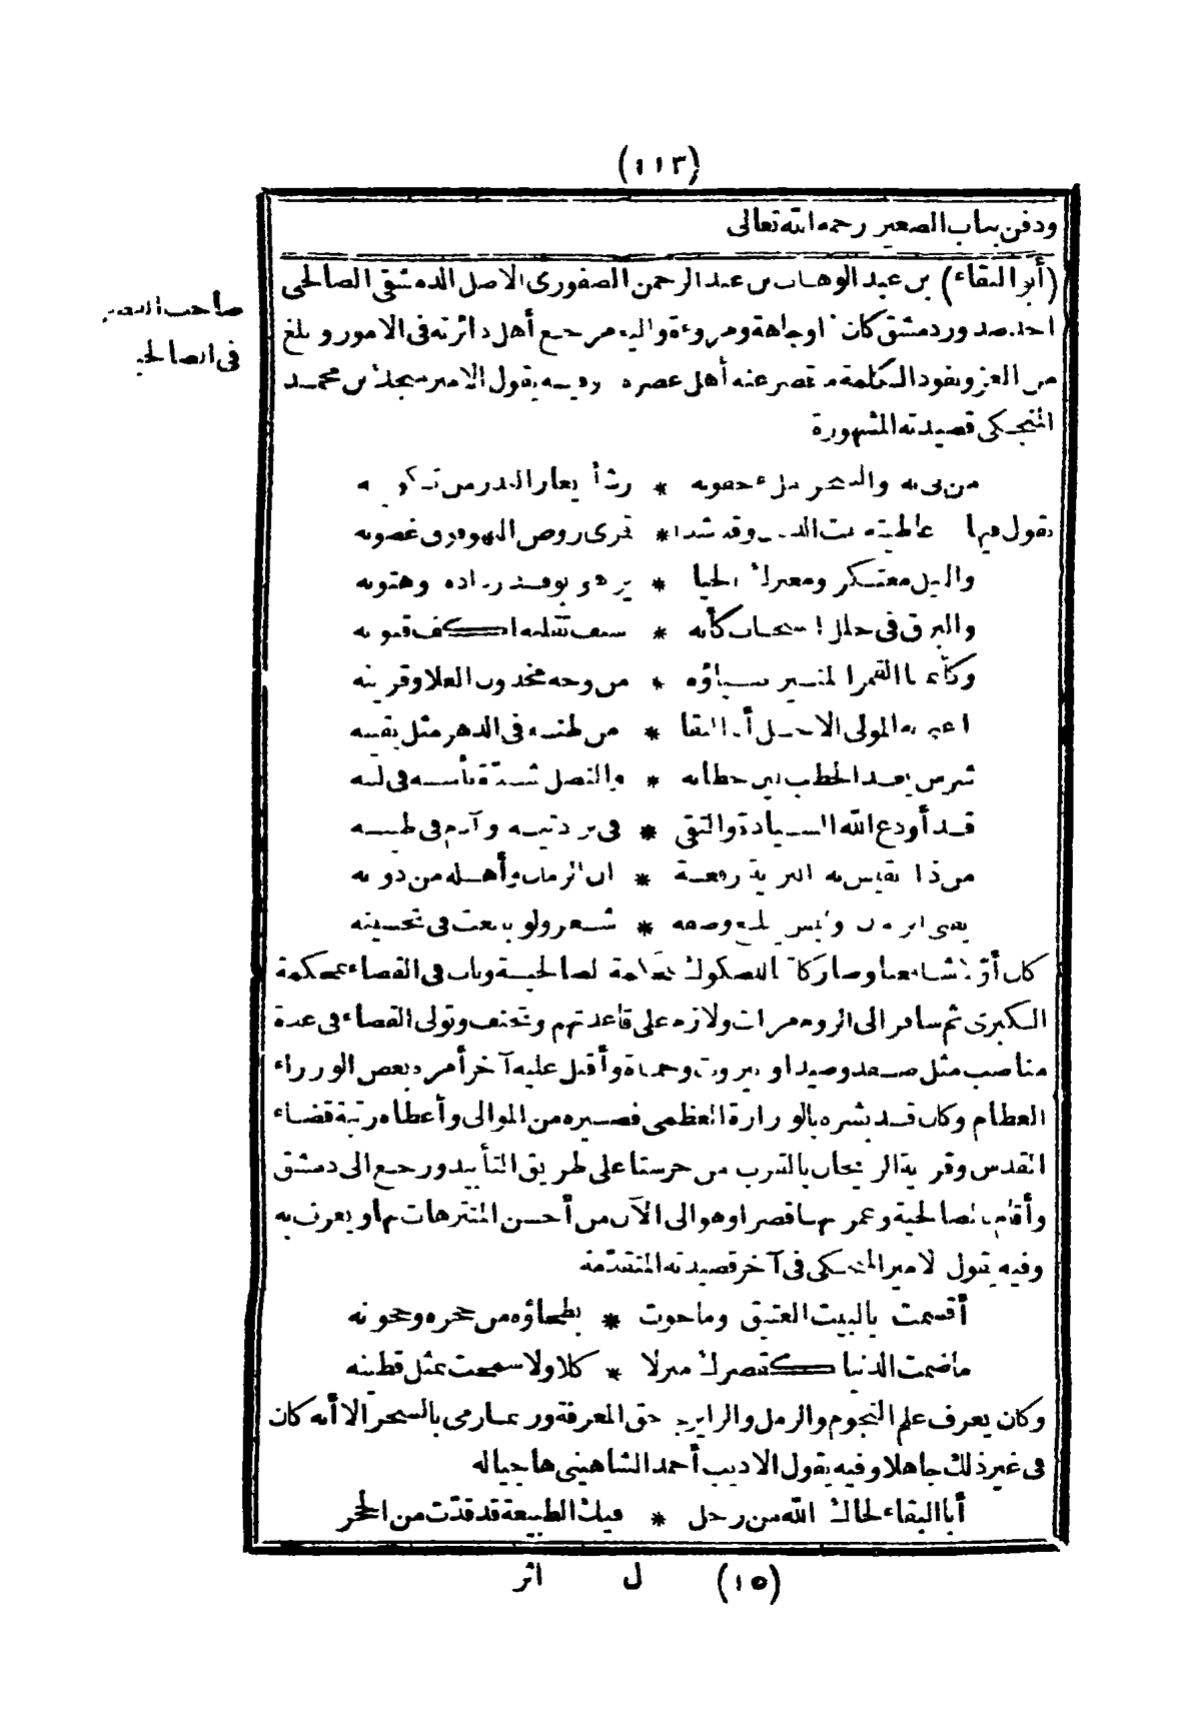 (١١٣)
ودفن بباب الصغير رحمه الله تعالى
(أبو البقاء) بن عبد الوهاب بن عبد الرحمن الصفورى الاصل الدمشقى الصالحى
صاحب القصر
احد صدور دمشق كان ذا وجاهة ومروءة واليه مرجع أهل دائرته فى الامور وبلغ
فى الصالحية
من العز ونفوذ الكلمة ما قصر عنه أهل عصره وفيه يقول الامير منجك بن محمد
المنجكى قصيدته المشهورة
والسحر ملء جفونه * رشأ يعار البدر من
يقول فيها عاطيته بنت الدنان وقد شدا * قمرى روض اللهو فوق غصونه
والليل معتكر ومعترك الحيا * يزهو
والبرق فى حلل السحاب كأنه * سيف تقلبه اكف قيونه
وكأنما القمر المنير سناؤه * من وجه مخدوم العلا وقرينه
اعنى به المولى الاجل أبا البقا * من لم فى الدهر مثل يقينه
شرس بعيد الخطب خطابه * والنصل شدة بأسه فى لينه
قد أودع الله السيادة والتقى * فى بردتيه وآدم فى طينه
من ذا يقيس به البرية رفعة * ان الزمان وأهله من دونه
يفنى الزمان وليس يبلغ وصفه * شعر ولو بالغت فى تحسينه
كان أوّلا شافعيا وصار كاتب الصكوك بمحكمة الصالحية وناب فى القضاء بمحكمة
الكبرى ثم سافر الى الروم مرات ولازم على قاعدتهم وتحنف وتولى القضاء فى عدة
مناصب مثل صفد وصيدا وبيروت وحماة وأقبل عليه آخر أمره بعض الوزراء
العظام وكان قد بشره بالوزارة العظمى فصيره من الموالى وأعطاه رتبة قضاء
القدس وقرية الريحان بالقرب من حرستا على طريق التأبيد ورجع الى دمشق
وأقام بالصالحية وعمر بها قصرا وهو الى الآن من أحسن المنتزهات بها ويعرف به
وفيه يقول الامير المنجكى فى آخر قصيدته المتقدّمة
أقسمت بالبيت العتيق وما حوت * بطحاؤه من حجره وحجونه
ما ضمت الدنيا كقصرك منزلا * كلا ولا سمحت بمثل قطينه
وكان يعرف علم النجوم والرمل والزايرجا حق المعرفة وربما رمى بالسحر الا أنه كان
فى غير ذلك جاهلا وفيه يقول الاديب أحمد الشاهينى هاجيا له
أبا البقاء لحاك الله من رجل * فيك الطبيعة قد قدّت من الحجر
(١٥) ل اثر